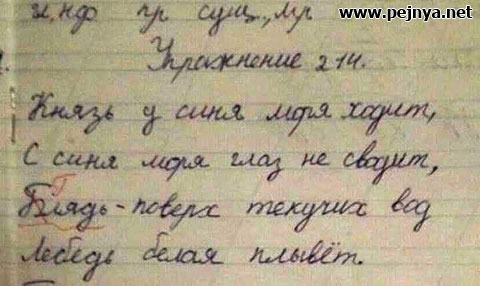 www.pejnya.net
и, нф пр сущ., мр
Упражнение 214.
Князь у синя моря ходит,
С синя моря глаз не сводит,
Г
Блядь - поверх текучих вод
Лебедь белая плывёт.